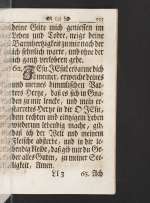 deine Güte mich geniessen im
Leben und Tode, neige deine
Barmhertzigkeit zu mir nach der
ich sehnlich warte, und ohne der
ich gantz verlohren gehe.
62. JEsu JEsu! erbarme dich
meiner, erweiche deines
und meines himmlischen Vat-
ters Hertze, daß es sich in Gna-
den zu mir lencke, und mein er-
starretes Hertze in dir O JEsu,
dem rechten und einzigen Leben
wiederum lebendig mache, als
daß ich der Welt und meinem
Fleische absterbe, und in dir le-
bendig bleibe, daß geb mir du Ge-
ber alles Guten, zu meiner See-
ligkeit, Amen.
Ll 3 63. Ach